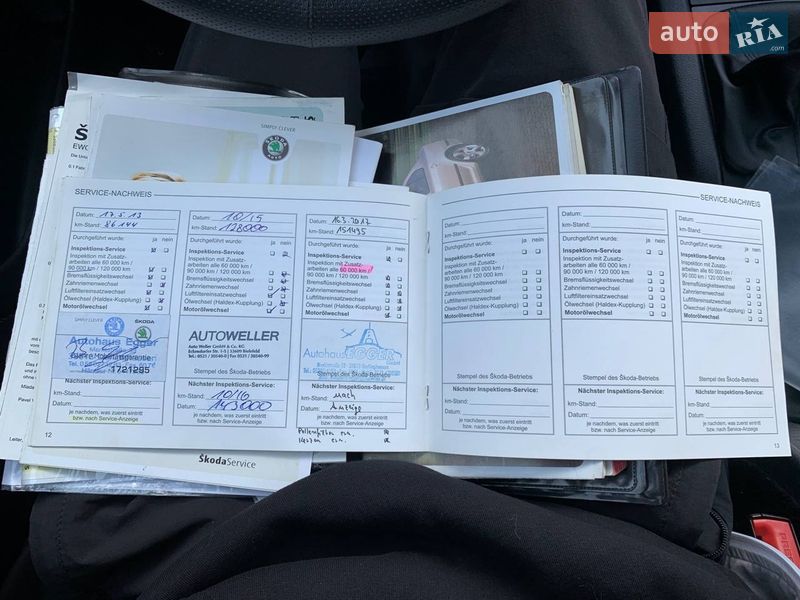 auto RIA .com
SIMPLY CLEVER
ŠKODA
SERVICE-NACHWEIS
Datum: 17.5.13
km-Stand: 86144
Durchgeführt wurde: ja nein
Inspektions-Service
Inspektion mit Zusatz-
arbeiten alle 60 000 km/
90 000 km / 120 000 km
Bremsflüssigkeitswechsel
Zahnriemenwechsel
Luftfiltereinsatzwechsel
Ölwechsel (Haldex-Kupplung)
Motorölwechsel
SIMPLY CLEVER ŠKODA
Autohaus Egger
1721295
Nächster Inspektions-Service:
km-Stand:
Datum:
je nachdem, was zuerst eintritt
bzw. nach Service-Anzeige
12
Datum: 10/15
km-Stand: 128000
Durchgeführt wurde: ja nein
Inspektions-Service
Inspektion mit Zusatz-
arbeiten alle 60 000 km/
90 000 km / 120 000 km
Bremsflüssigkeitswechsel
Zahnriemenwechsel
Luftfiltereinsatzwechsel
Ölwechsel (Haldex-Kupplung)
Motorölwechsel
AUTOWELLER
Auto Weller GmbH & Co. KG
Stempel des Škoda-Betriebs
Nächster Inspektions-Service:
km-Stand: 10/16
Datum: 143000
je nachdem, was zuerst eintritt
bzw. nach Service-Anzeige
Datum: 16.3.2017
km-Stand: 151495
Durchgeführt wurde: ja nein
Inspektions-Service
Inspektion mit Zusatz-
arbeiten alle 60 000 km/
90 000 km / 120 000 km
Bremsflüssigkeitswechsel
Zahnriemenwechsel
Luftfiltereinsatzwechsel
Ölwechsel (Haldex-Kupplung)
Motorölwechsel
Autohaus EGGER
Stempel des Škoda-Betriebs
Nächster Inspektions-Service:
km-Stand: nach
Datum: Anzeige
je nachdem, was zuerst eintritt
bzw. nach Service-Anzeige
SERVICE-NACHWEIS
Datum:
km-Stand:
Durchgeführt wurde: ja nein
Inspektions-Service
Inspektion mit Zusatz-
arbeiten alle 60 000 km/
90 000 km / 120 000 km
Bremsflüssigkeitswechsel
Zahnriemenwechsel
Luftfiltereinsatzwechsel
Ölwechsel (Haldex-Kupplung)
Motorölwechsel
Stempel des Škoda-Betriebs
Nächster Inspektions-Service:
km-Stand:
Datum:
je nachdem, was zuerst eintritt
bzw. nach Service-Anzeige
Datum:
km-Stand:
Durchgeführt wurde: ja nein
Inspektions-Service
Inspektion mit Zusatz-
arbeiten alle 60 000 km/
90 000 km / 120 000 km
Bremsflüssigkeitswechsel
Zahnriemenwechsel
Luftfiltereinsatzwechsel
Ölwechsel (Haldex-Kupplung)
Motorölwechsel
Stempel des Škoda-Betriebs
Nächster Inspektions-Service:
km-Stand:
Datum:
je nachdem, was zuerst eintritt
bzw. nach Service-Anzeige
Datum:
km-Stand:
Durchgeführt wurde: ja nein
Inspektions-Service
Inspektion mit Zusatz-
arbeiten alle 60 000 km/
90 000 km / 120 000 km
Bremsflüssigkeitswechsel
Zahnriemenwechsel
Luftfiltereinsatzwechsel
Ölwechsel (Haldex-Kupplung)
Motorölwechsel
Stempel des Škoda-Betriebs
Nächster Inspektions-Service:
km-Stand:
Datum:
je nachdem, was zuerst eintritt
bzw. nach Service-Anzeige
13
ŠkodaService